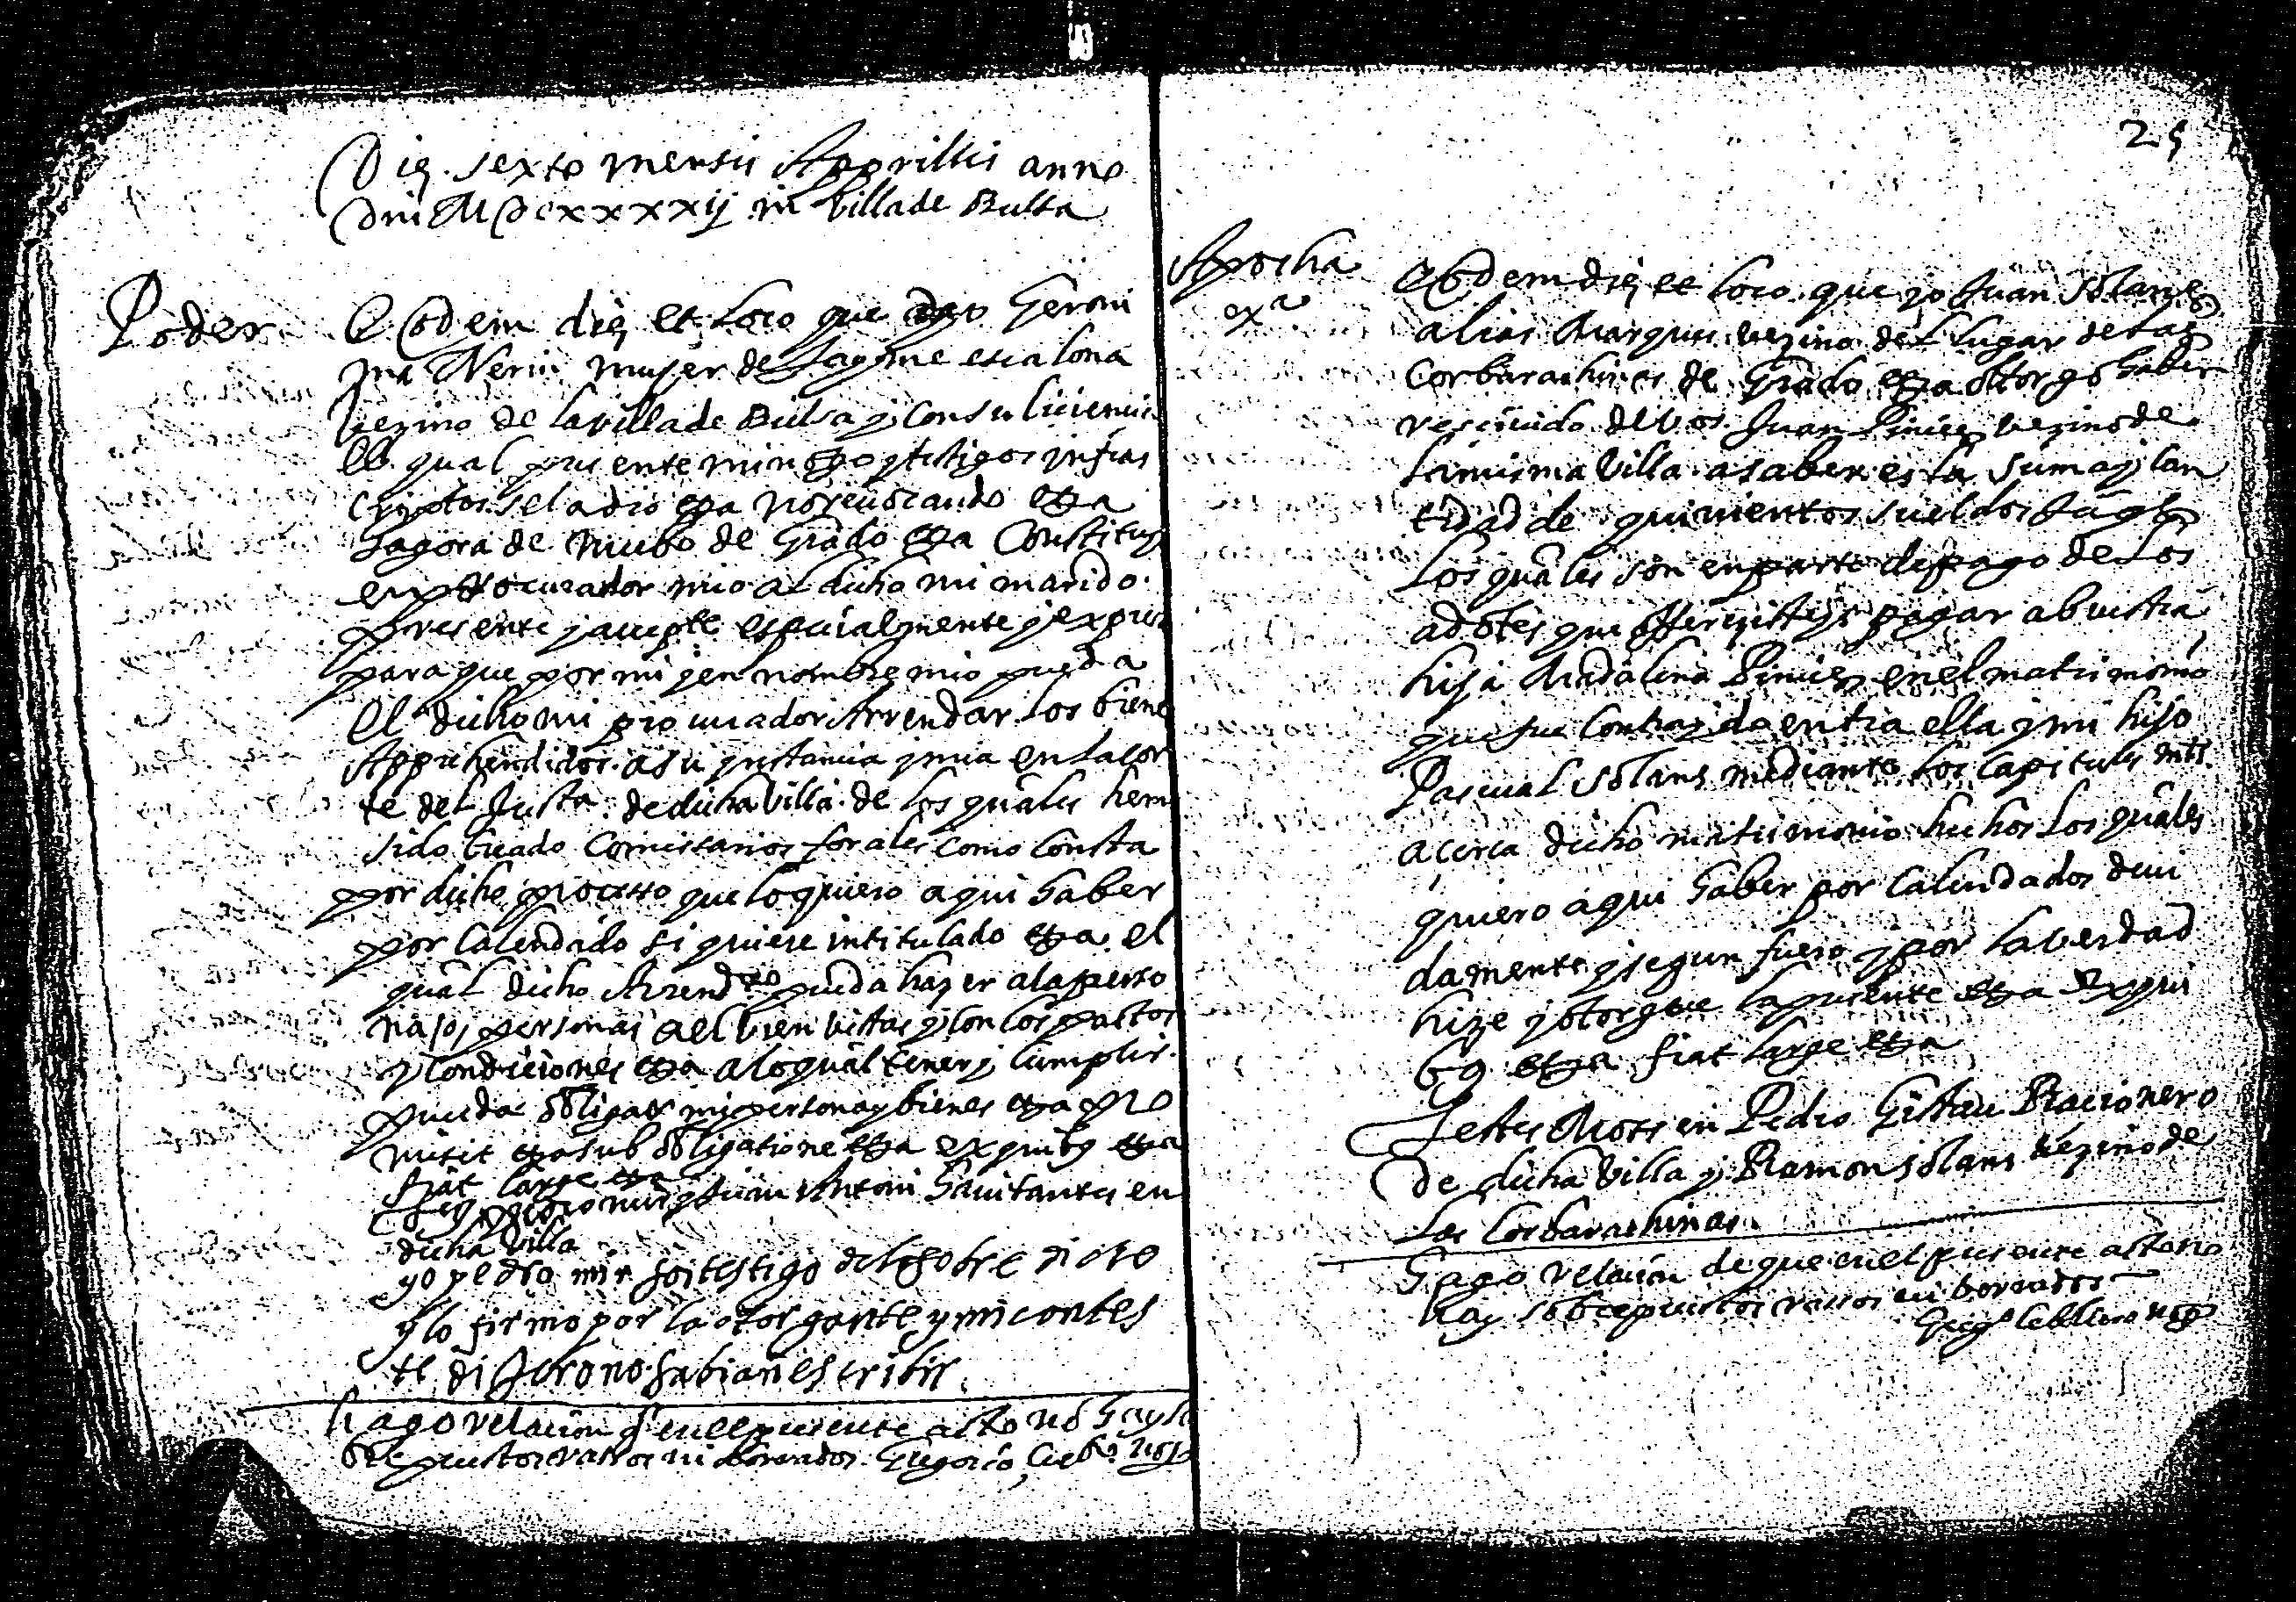 Die sexto mensis Apprillis anno
dni MDCxxxxij in villa de Bulsa
Poder
Eodem die et loco que yo Geroni
ma Nerin mujer de Jayme escalona
vezino de la villa de Bulsa y con su licencia
el qual presente mi noto y testigos infras
criptos se la dio etza no revocando etza
hagora de nuebo de Grado etza Constituy
en procurador mio al dicho mi marido
presente y accepte especialmente y expres
para que por mi y en nombre mio pueda
el dicho mi procurador Arrendar los biene
Apprehendidos a su instancia y mia en la cor
te del Justa de dicha villa de los quales hem
sido creado Comissarios forales como consta
por dicho processo que lo quiero aqui haber
por calendado si quiere intitulado etza el
qual dicho Arrendto pueda hazer a la perso
na o personas a el bien vistas y con los pactos
y condiciones etza a lo qual tener y cumplir
pueda obligar mi persona y bienes etza pro
misit etza sub obligatione etza ex quibus etza
fiat large etza
Pedro mir y Juan Antoni habitantes en
dicha villa
yo pedro mir soi testigo de lo sobre dicho
y lo firmo por la otorgante y mi contes
te di Jeron no sabian escribir
hago relacion q en el presente acto no hay so
bre puestos rassos ni borrados Gregorio
25
Apocha
exa
Eodem die et loco que yo Juan Solans
alias Marques vezino del lugar de las
Corbarachinas de Grado etza otorgo haber
rescivido de vos Juan Pinies vezino de
la misma villa a saber es la suma y can
tidad de quinientos sueldos Jaqs
los quales son en parte de pago de los
adotes que offrezisteys pagar a buestra
hija Madalena Pinies en el matrimonio
que fue contraydo entra ella y mi hijo
Pascual Solans mediante los capitules mts
acerca dicho matrimonio hechos los quales
quiero aqui haber por calendados devi
damente y segun fuero y por la verdad
hize y otorgue la presente etza Ex qui
bus etza fiat large etza
Testes Mossen Pedro Gistau Racionero
de dicha villa y Ramon Solans vezino de
las Corbarachinas
Hago relacion de que en el presente acto no
hay sobrepuestos rassos ni borrados